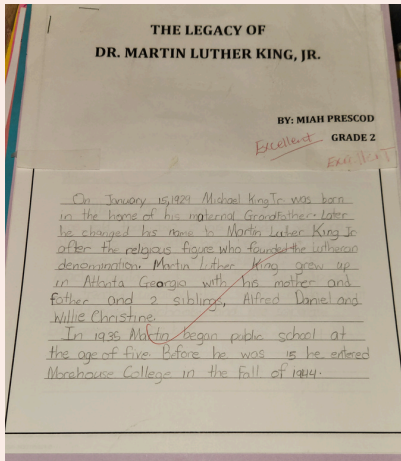 THE LEGACY OF
DR. MARTIN LUTHER KING, JR.
BY: MIAH PRESCOD
Excellent GRADE 2
Excellent
On January 15, 1929 Michael King Jr. was born
in the home of his maternal Grandfather. Later
he changed his name to Martin Luther King Jr
after the religious figure who founded the Lutheran
denomination. Martin Luther King grew up
in Atlanta Greorgia with his mother and
father and 2 siblings, Alfred Daniel and
Willie Christine.
In 1935 Martin began public school at
the age of five. Before he was 15 he entered
Morehouse College in the Fall of 1944.